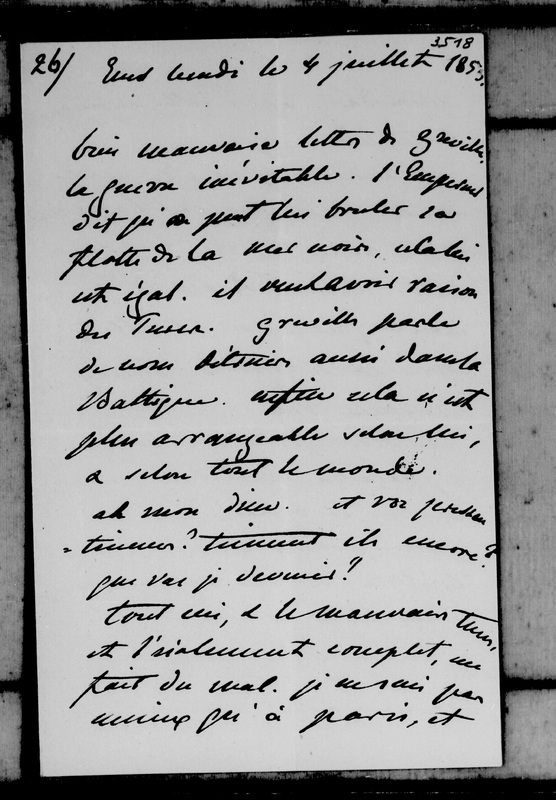 3518
26/ Ems lundi le 4 juillet 1853.
bien mauvaise lettre de Greville.
la guerre inévitable. l'Empereur
dit qu'on peut lui bruler sa
flotte de la mer noire, cela lui
est égal. il veut avoir raison
des Turcs. Greville parle
de nous détruire aussi dans la
Baltique. enfin cela n'est
plus arrangeable selon lui,
& selon tout le monde.
ah mon dieu. et vos pressen
-timens? tiennent ils encore?
que vais je devenir?
tout ceci, & le mauvais tems,
et l'isolement complet, me
fait du mal. je ne suis pas
mieux qu'à paris, et